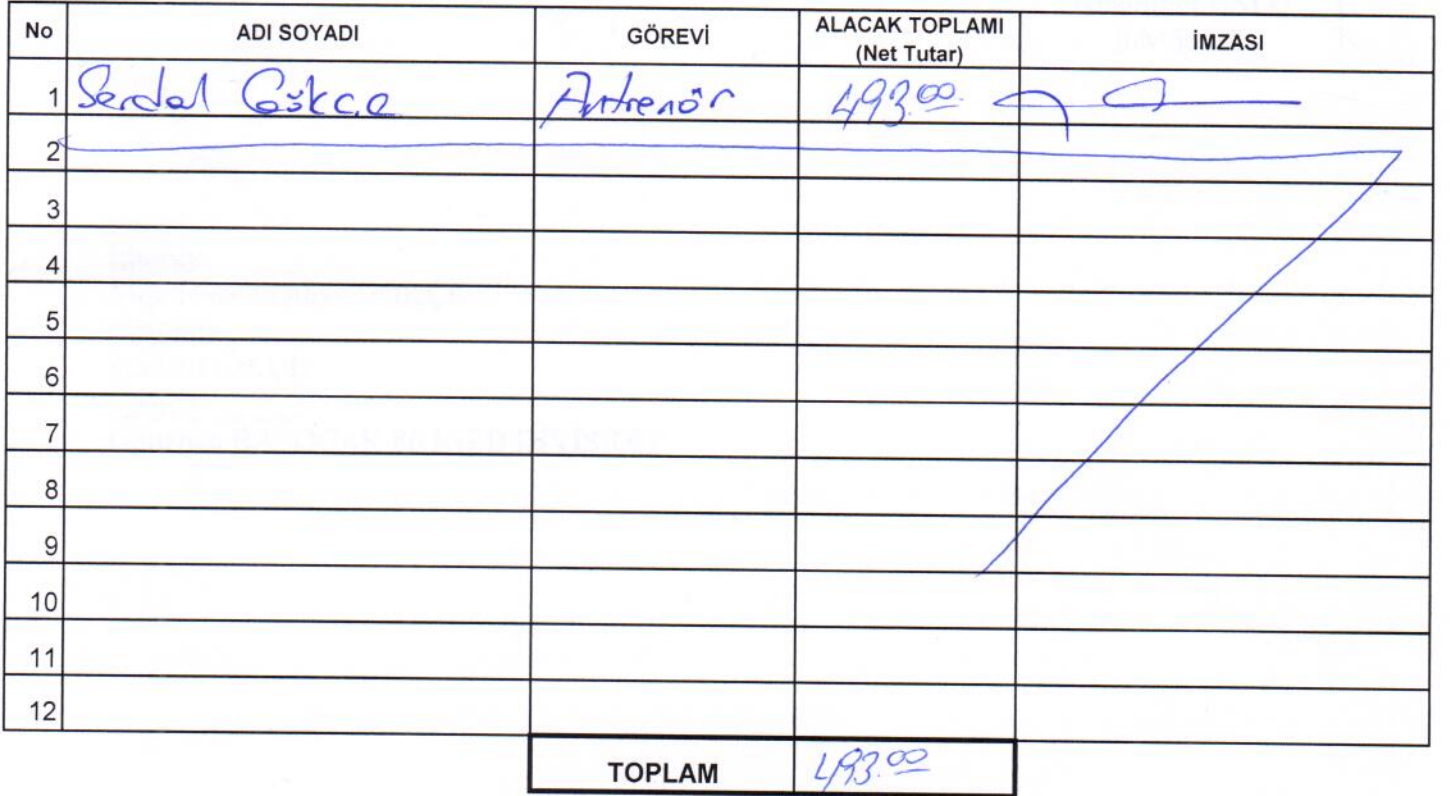 No ADI SOYADI GÖREVİ ALACAK TOPLAMI (Net Tutar) İMZASI
1 Serdal Gökçe Antrenör 493.00
2
3
4
5
6
7
8
9
10
11
12
TOPLAM 493.00